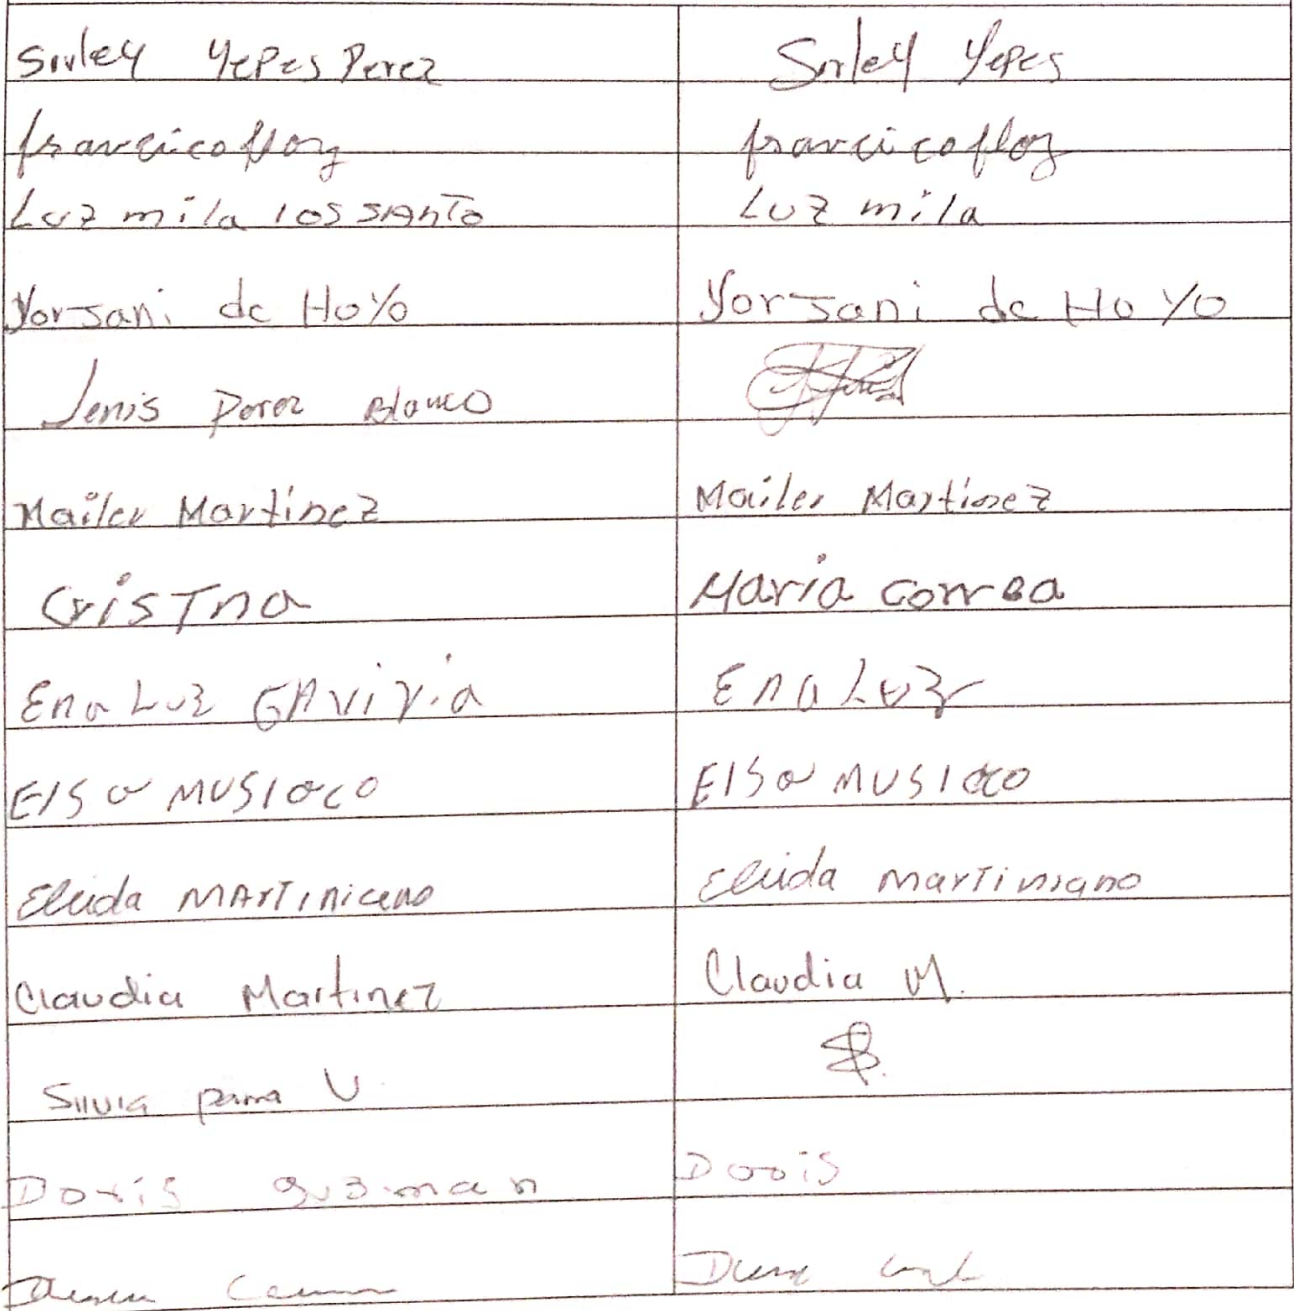 Sirley Yepes Perez Sirley Yepes
francico floz francico floz
Luz mila los SAnTo Luz mila
Yorjani de Hoyo Yorjani de Hoyo
Jenis Perez Blanco
Mailer Martinez Mailer Martinez
CrisTna Maria correa
Ena Luz GAviria Ena Luz
Elsa MUSIaco Elsa MUSIaco
Eluida MArTiniano Eluida marTiniano
Claudia Martinez Claudia M.
Silvia parra V
Doris guzman Doris